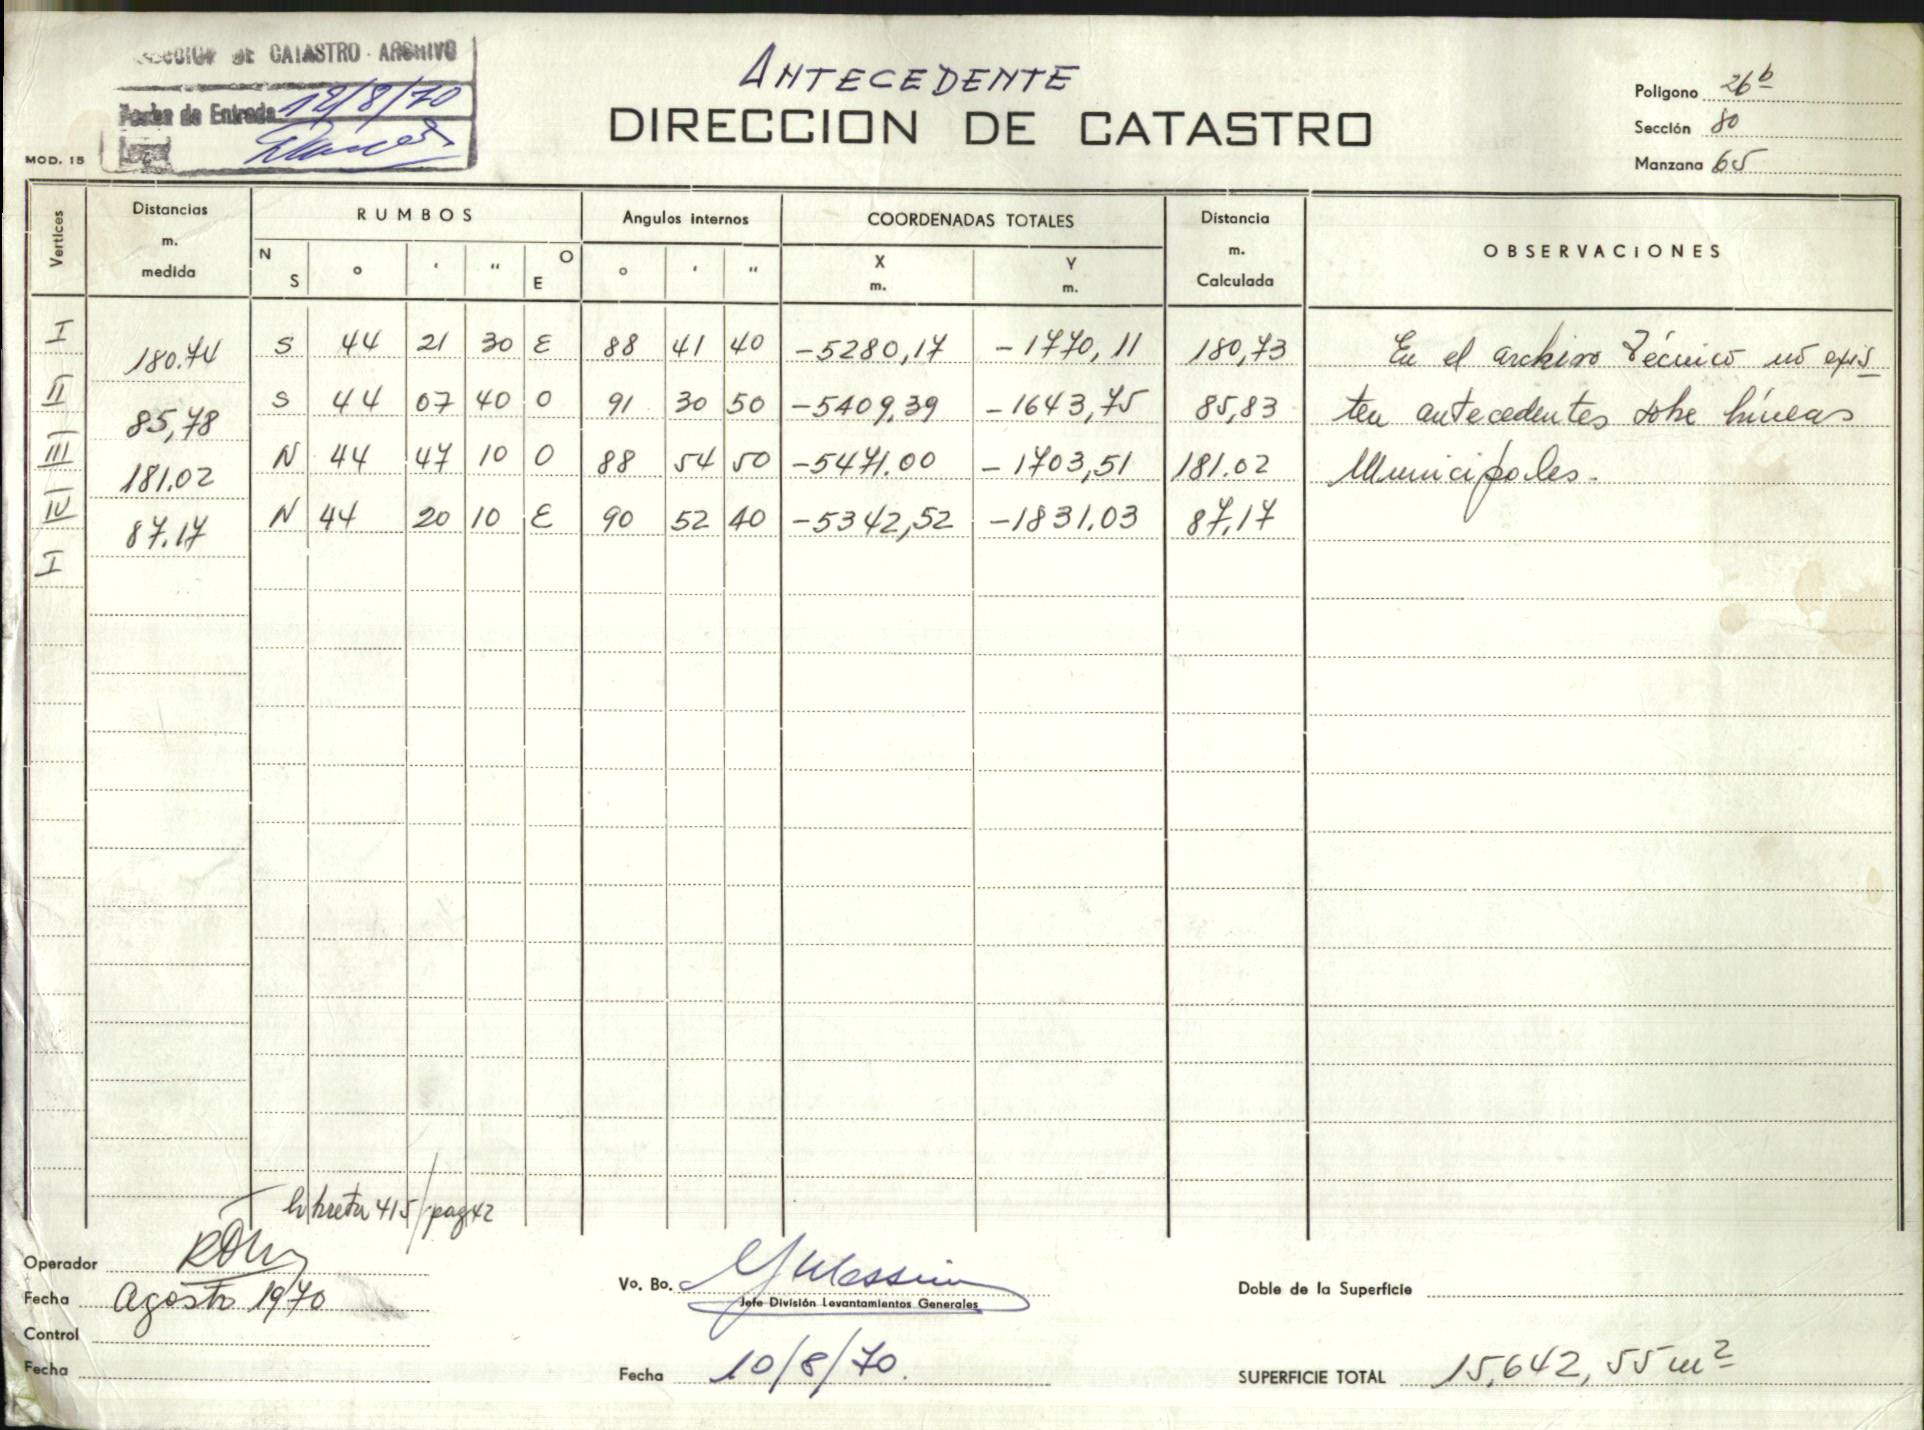 DE CATASTRO - ARCHIVO
Fecha de Entrada 12/8/70
Legajo
MOD. 15
ANTECEDENTE
DIRECCION DE CATASTRO
Poligono 26b
Sección 80
Manzana 65
Vertices
Distancias m. medida
RUMBOS
Angulos internos
COORDENADAS TOTALES
Distancia m. Calculada
OBSERVACIONES
N S ° ' " O E
° ' "
X m. Y m.
I 180.74 S 44 21 30 E 88 41 40 -5280,17 -1770,11 180,73 En el archivo Técnico no exis
II 85,78 S 44 07 40 O 91 30 50 -5409,39 -1643,75 85,83 ten antecedentes sobre líneas
III 181.02 N 44 47 10 O 88 54 50 -5471.00 -1703,51 181.02 Municipales.
IV 87.17 N 44 20 10 E 90 52 40 -5342,52 -1831.03 87,17
I
Libreta 415/pag 42
Operador
Fecha Agosto 1970
Control
Fecha
Vo. Bo.
Jefe División Levantamientos Generales
Fecha 10/8/70.
Doble de la Superficie
SUPERFICIE TOTAL 15.642,55 m2